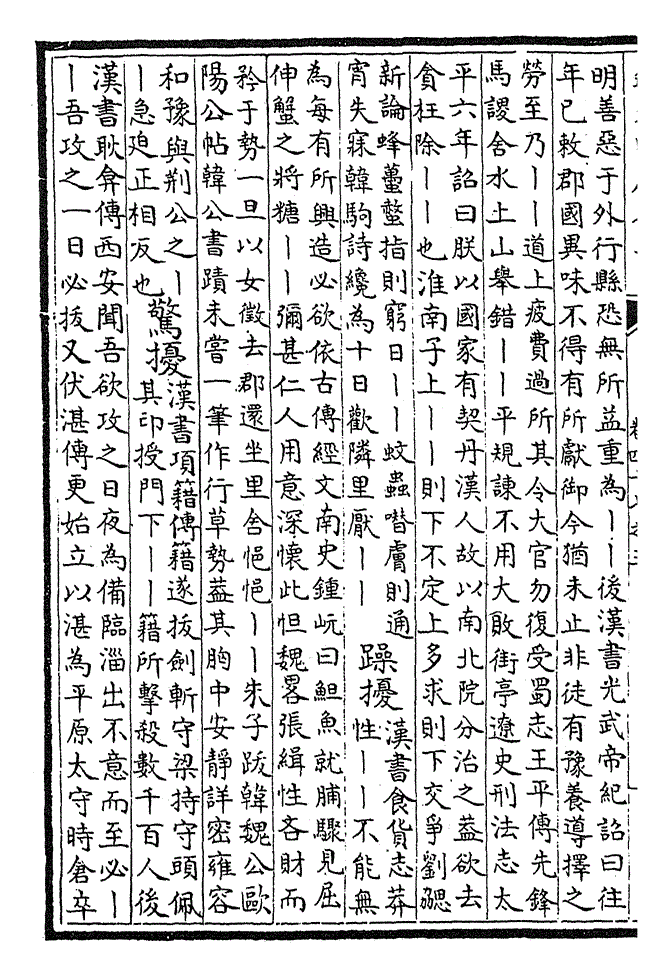 明善惡于外行縣恐無所益重為丨丨後漢書光武帝紀詔曰往
年已敕郡國異味不得有所獻御今猶未止非徒有豫養導擇之
勞至乃丨丨道上疲費過所其令大官勿復受蜀志王平傳先鋒
馬謖舍水上山舉錯丨丨平規諫不用大敗街亭遼史刑法志太
平六年詔曰朕以國家有契丹漢人故以南北院分治之蓋欲去
貪枉除丨丨也淮南子上丨丨則下不定上多求則下交爭劉勰
新論蜂蠆螫指則窮日丨丨蚊蟲噆膚則通
宵失寐韓駒詩纔為十日歡隣里厭丨丨
躁擾
漢書食貨志莽
性丨丨不能無
為每有所興造必欲依古傳經文南史鍾岏曰䱇魚就脯驟見屈
伸蟹之將糖丨丨彌甚仁人用意深懷此怛魏畧張緝性吝財而
矜于勢一旦以女徵去郡還坐里舍悒悒丨丨朱子跋韓魏公歐
陽公帖韓公書蹟未嘗一筆作行草勢蓋其胸中安靜詳密雍容
和豫與荆公之丨
丨急迫正相反也
驚擾
漢書項籍傳籍遂拔劍斬守梁持守頭佩
其印授門下丨丨籍所擊殺數千百人後
漢書耿弇傳西安聞吾欲攻之日夜為備臨淄出不意而至必丨
丨吾攻之一日必拔又伏湛傳更始立以湛為平原太守時倉卒